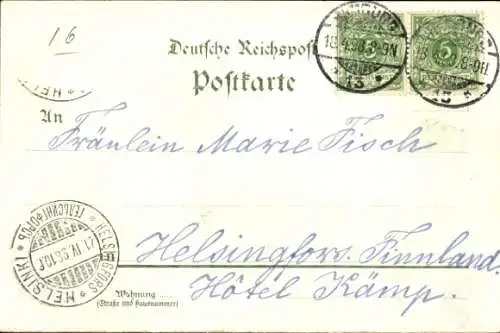 16
Deutsche Reichspost
Postkarte
An
Fräulein Marie Fisch
Helsingfors. Finnland.
Hôtel Kämp.
Wohnung
(Straße und Hausnummer)
5 5
8-9N
13
HELSINGFORS * HELSINKI * ГЕЛЬСИНГФОРСЪ